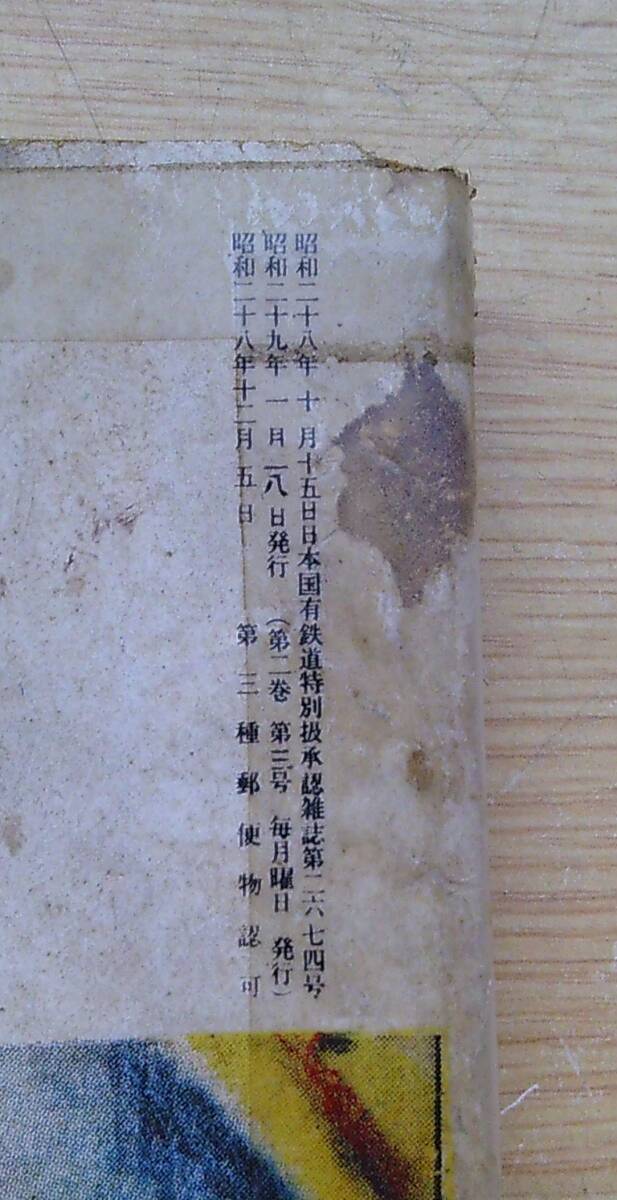 昭和二十八年十月十五日日本国有鉄道特別扱承認雑誌第二六七四号
昭和二十九年一月一八日発行（第二巻第三号毎月曜日発行）
昭和二十八年十二月五日第三種郵便物認可